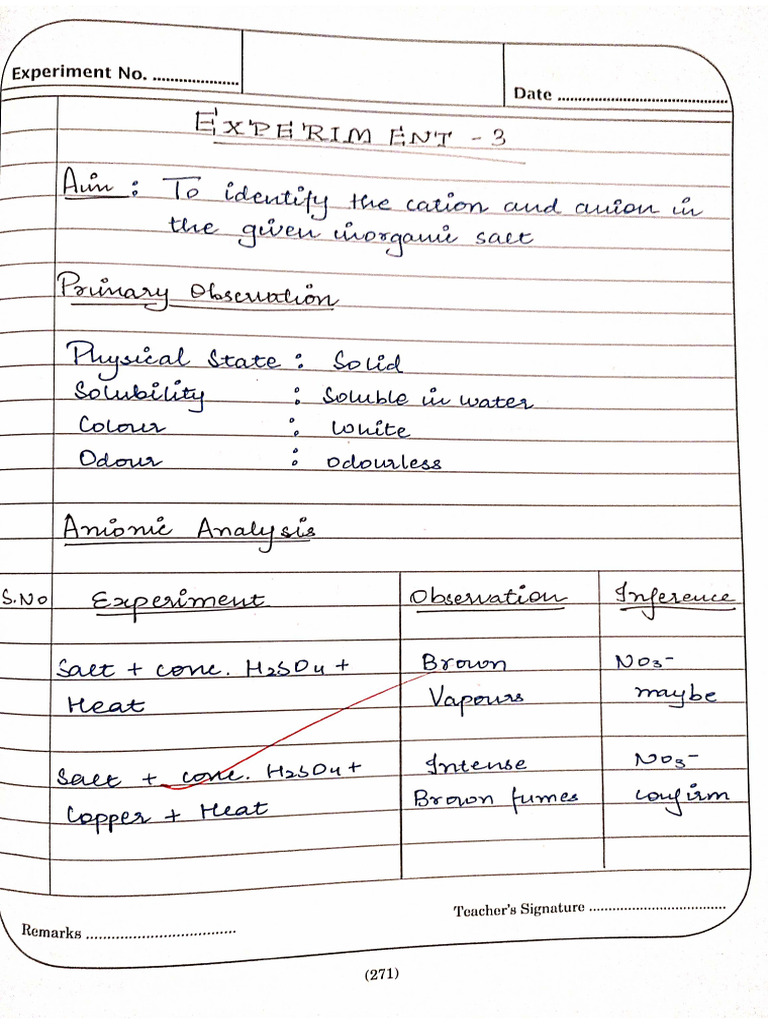 Experiment No. ....................
Date ........................................
EXPERIMENT - 3
Aim : To identify the cation and anion in
the given inorganic salt
Primary Observation
Physical State : Solid
Solubility : Soluble in water
Colour : White
Odour : odourless
Anionic Analysis
S.No Experiment Observation Inference
Salt + conc. H2SO4 + Brown NO3-
Heat Vapours maybe
Salt + conc. H2SO4 + Intense NO3-
Copper + Heat Brown fumes confirm
Teacher's Signature ..................................
Remarks ....................................
(271)